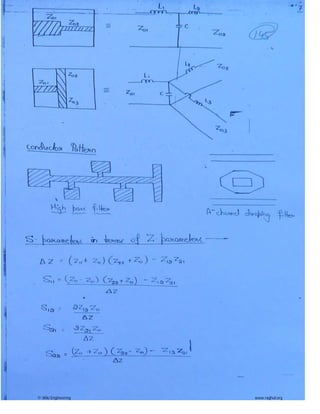 L₁ L₂
Z₀₁ Z₀₂ ≡ Z₀₁ C Z₀₂
145
Z₀₁ Z₀₂ Z₀₃ ≡ L₁ Z₀₁ C L₂ Z₀₂ L₃ Z₀₃
Conductor Pattern
High pass filter
channel dropping filter
S-parameters in terms of Z parameters
ΔZ = (Z₁₁ + Z₀) (Z₂₂ + Z₀) - Z₁₂ Z₂₁
S₁₁ = (Z₁₁ - Z₀) (Z₂₂ + Z₀) - Z₁₂ Z₂₁
ΔZ
S₁₂ = 2Z₁₂ Z₀
ΔZ
S₂₁ = 2Z₂₁ Z₀
ΔZ
S₂₂ = (Z₁₁ + Z₀) (Z₂₂ - Z₀) - Z₁₂ Z₂₁
ΔZ
www.raghul.org